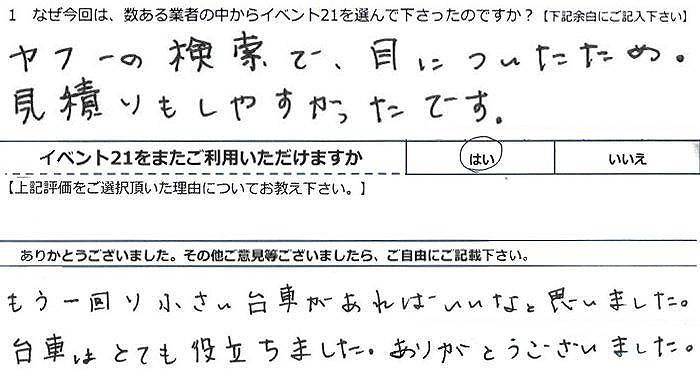 1 なぜ今回は、数ある業者の中からイベント21を選んで下さったのですか?【下記余白にご記入下さい】
ヤフーの検索で、目についたため。
見積りもしやすかったです。
イベント21をまたご利用いただけますか はい いいえ
【上記評価をご選択頂いた理由についてお教え下さい。】
ありがとうございました。その他ご意見等ございましたら、ご自由にご記載下さい。
もう一回り小さい台車があればいいなと思いました。
台車はとても役立ちました。ありがとうございました。